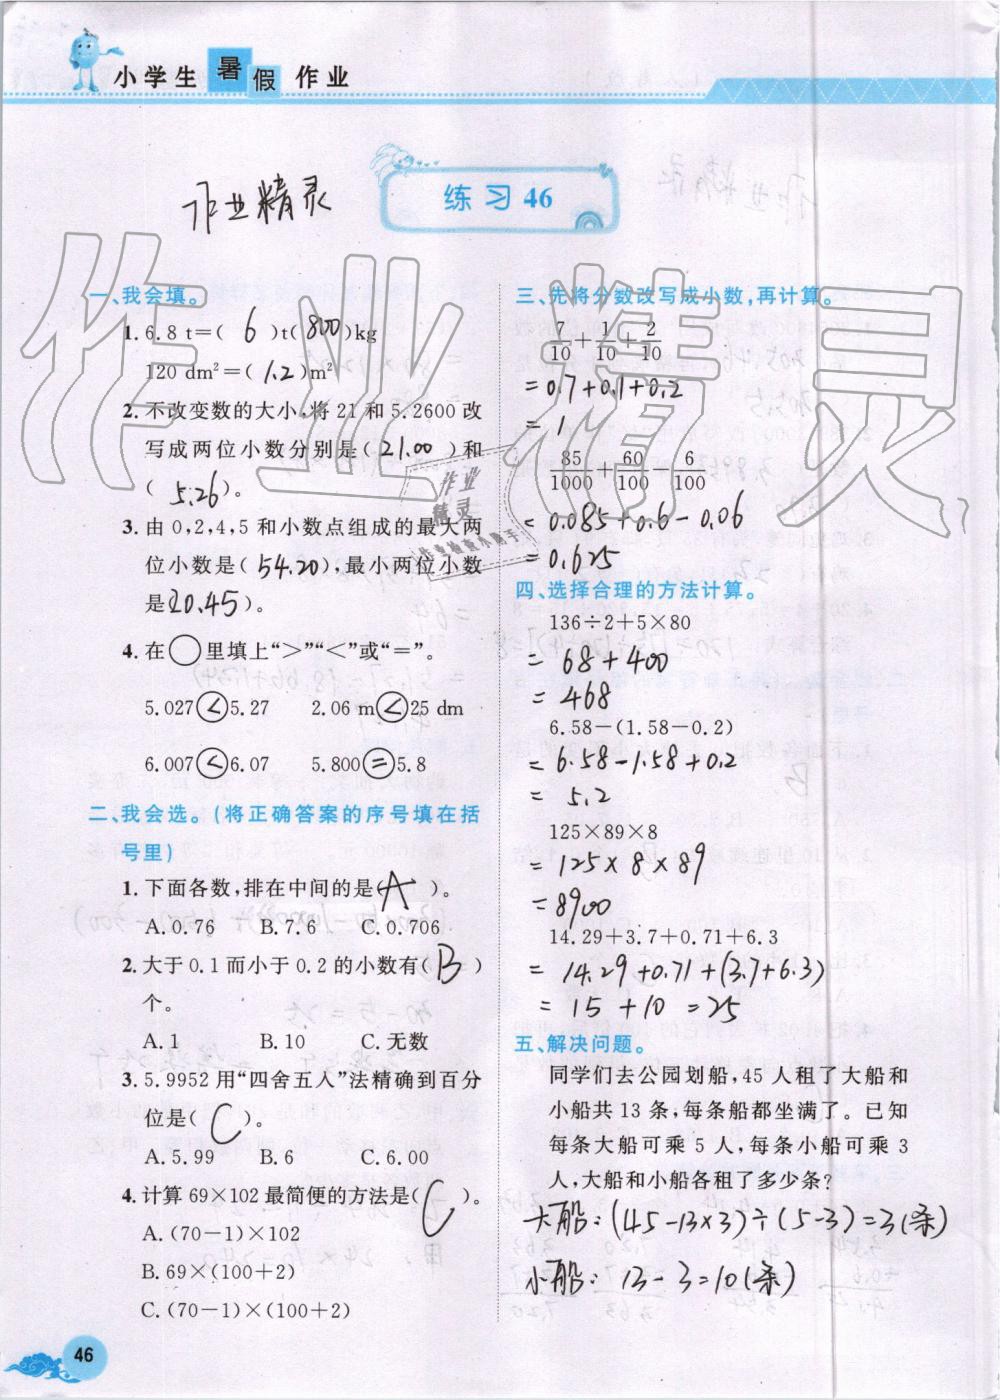 小学生 暑假 作业
练习46
作业精灵
一、我会填。
1. 6.8 t=( 6 )t( 800 )kg
120 dm²=( 1.2 )m²
2. 不改变数的大小,将 21 和 5.2600 改
写成两位小数分别是( 21.00 )和
( 5.26 )。
3. 由 0,2,4,5 和小数点组成的最大两
位小数是( 54.20 ),最小两位小数
是(20.45)。
4. 在○里填上“>”“<”或“=”。
5.027 < 5.27 2.06 m < 25 dm
6.007 < 6.07 5.800 = 5.8
二、我会选。(将正确答案的序号填在括
号里)
1. 下面各数,排在中间的是( A )。
A. 0.76 B. 7.6 C. 0.706
2. 大于 0.1 而小于 0.2 的小数有( B )
个。
A. 1 B. 10 C. 无数
3. 5.9952 用“四舍五入”法精确到百分
位是( C )。
A. 5.99 B. 6 C. 6.00
4. 计算 69×102 最简便的方法是( C )。
A. (70-1)×102
B. 69×(100+2)
C. (70-1)×(100+2)
三、先将分数改写成小数,再计算。
7/10+1/10+2/10
=0.7+0.1+0.2
=1
85/1000+60/100-6/100
=0.085+0.6-0.06
=0.625
四、选择合理的方法计算。
136÷2+5×80
=68+400
=468
6.58-(1.58-0.2)
=6.58-1.58+0.2
=5.2
125×89×8
=125×8×89
=8900
14.29+3.7+0.71+6.3
=14.29+0.71+(3.7+6.3)
=15+10=25
五、解决问题。
同学们去公园划船,45 人租了大船和
小船共 13 条,每条船都坐满了。已知
每条大船可乘 5 人,每条小船可乘 3
人,大船和小船各租了多少条?
大船:(45-13×3)÷(5-3)=3(条)
小船:13-3=10(条)
46
作业精灵
作业
精灵